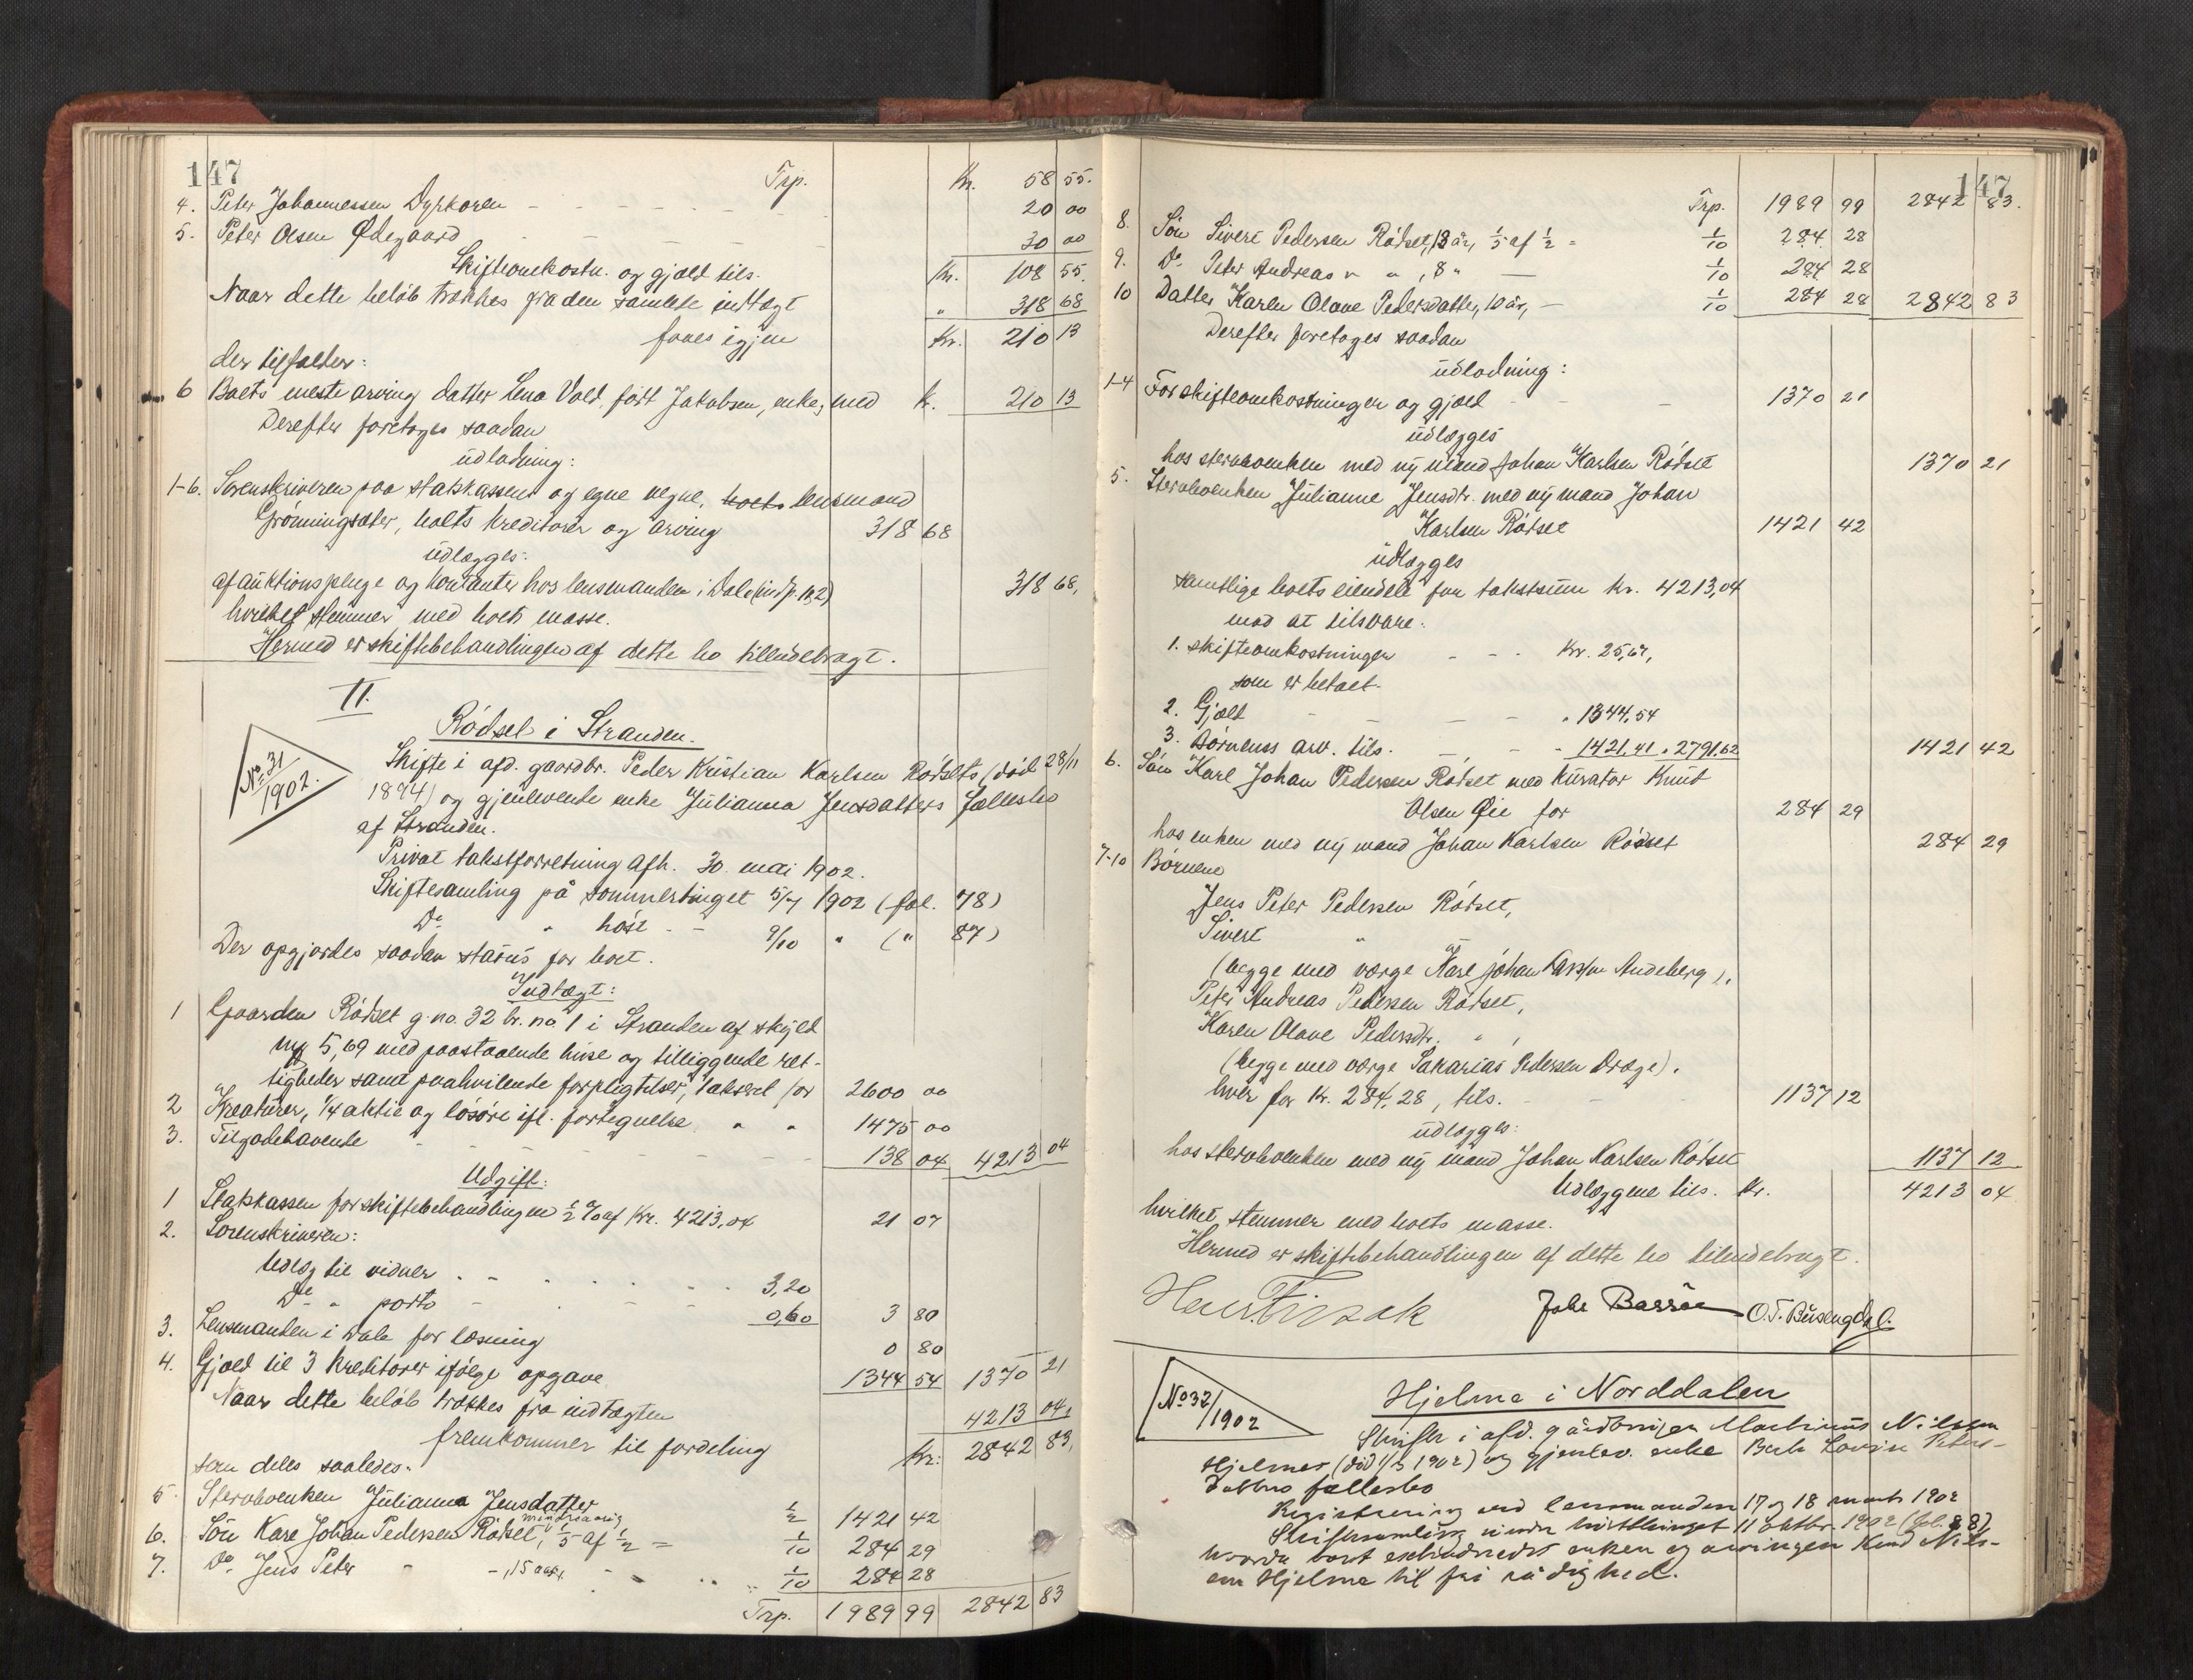 147
Trp. Kr. 58 55.
4. Peter Johannessen Dyrkoren 20 00
5. Peter Olsen Ødegaard 30 00
Skifteomkostn. og gjæld tils. Kr. 108 55.
Naar dette beløb trækkes fra den samlede indtægt " 318 68
faaes igjen Kr. 210 13
der tilfalder:
6 Boets eneste arving datter Lena Vold, født Jakobsen, enke, med k. 210 13
Derefter foretoges saadan
udlodning:
1-6. Sorenskriveren paa statskassens og egne vegne, boets lensmand
Grønningsæter, boets kreditorer og arving 318 68
udlægges:
af auktionspenge og kontanter hos lensmanden i Dale (indp. 1&2) 318 68,
hvilket stemmer med boets masse.
Hermed er skiftebehandlingen af dette bo tilendebragt.
II.
Rødset i Stranden.
No 31/1902.
Skifte i afd. gaardbr. Peder Kristian Karlsen Rødsets (død 28/11
1894) og gjenlevende enke Julianna Jensdatters fællesbo
af Stranden.
Privat takstforretning afh. 30. mai 1902.
Skiftesamling på sommertinget 5/7 1902 (fol. 78)
Do " høst - - 9/10 " (" 87)
Der opgjordes saadan status for boet.
Indtægt:
1 Gaarden Rødset g. no. 32 br. no. 1 i Stranden af skyld
mk 5,69 med paastaaende huse og tilliggende ret-
tigheder samt paahvilende forpligtelser, takseret for 2600 00
2 Kreaturer, 1/4 aktie og løsøre ifl. fortegnelse " " 1475 00
3. Tilgodehavende 138 04 4213 04
Udgift:
1 Statskassen for skiftebehandlingen 1/2 % af Kr. 4213,04 21 07
2. Sorenskriveren:
Udlæg til vidner 3,20
Do " porto 0,60 3 80
3. Lensmanden i Dale for læsning 0 80
4. Gjæld til 3 kreditorer ifølge opgave 1344 54 1370 21
Naar dette beløb trækkes fra indtægten 4213 04,
fremkommer til fordeling Kr. 2842 83,
som deles saaledes:
5 Stervboenken Julianna Jensdatter 1/2 1421 42
6. Søn Karl Johan Pedersen Rødset, mindreaarig 1/5 af 1/2 = 1/10 284 29
7. Do Jens Peter - -, 15 aar, 1/10 284 28
Trp. 1989 99 2842 83
147
Trp. 1989 99 2842 83.
8. Søn Sivert Pedersen Rødset, 13 år, 1/5 af 1/2 = 1/10 284 28
9. Do Peter Andreas " " , 8 " — 1/10 284 28
10 Datter Karen Olave Pedersdatter, 10 år, — 1/10 284 28 2842 83
Derefter foretoges saadan
udlodning:
1-4 For skifteomkostninger og gjæld 1370 21
udlægges
hos stervboenken med ny mand Johan Karlsen Rødset 1370 21
5. Stervboenken Julianne Jensdtr. med ny mand Johan
Karlsen Rødset 1421 42
udlægges
samtlige boets eiendele for takstsum kr. 4213,04
mod at tilsvare:
1. skifteomkostninger Kr. 25,67,
som er betalt.
2. Gjæld " 1344,54
3. Børnenes arv. tils. 1421,41 " 2791,62 1421 42
6. Søn Karl Johan Pedersen Rødset med kurator Knut
Olsen Øie for 284 29
hos enken med ny mand Johan Karlsen Rødset 284 29
7-10 Børnene
Jens Peter Pedersen Rødset,
Sivert " -
(begge med værge Karl Johan Larssen Andeberg),
Peter Andreas Pedersen Rødset,
Karen Olave Pedersdtr. " ,
(begge med værge Sakarias Pedersen Drage).
hver for kr. 284,28, tils. 1137 12
udlægges:
hos stervboenken med ny mand Johan Karlsen Rødset 1137 12
Udlæggene tils. Kr. 4213 04
hvilket stemmer med boets masse.
Hermed er skiftebehandlingen af dette bo tilendebragt.
O. T. Busengdal.
No 32/1902
Hjelme i Norddalen
Skifte i afd. gårdbruger Martinus Nilssen
Hjelmes (død 1/3 1902) og gjenlev. enke Berte Lovise Peters-
datters fællesbo
Registrering ved lensmanden 17 og 18 marts 1902
Skiftesamling under høsttinget 11 oktbr. 1902 (fol. 88)
hvorda boet extraderedes enken og arvingen Knud Nils-
sen Hjelme til fri rådighed.